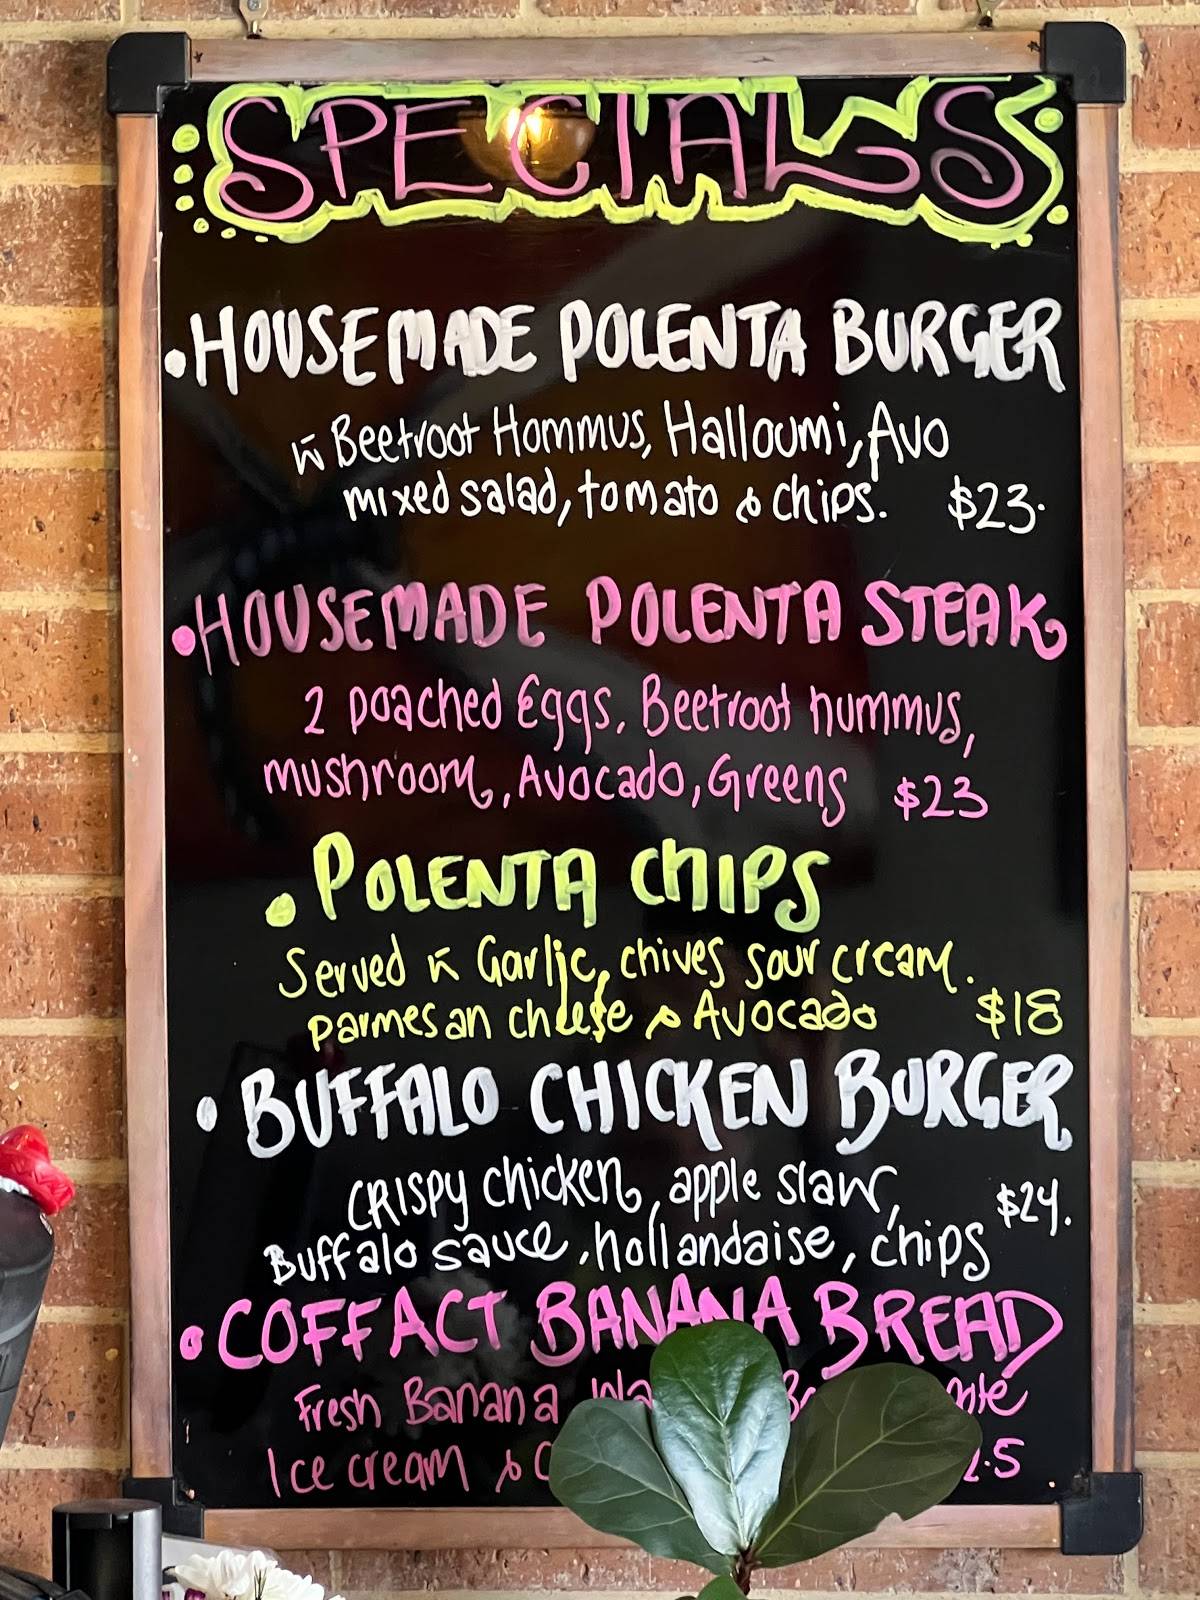 SPECIALS
• HOUSEMADE POLENTA BURGER
w̄ Beetroot Hommus, Halloumi, Avo
mixed salad, tomato & chips. $23.
• HOUSEMADE POLENTA STEAK
2 poached Eggs, Beetroot hummus,
mushroom, Avocado, Greens $23
• POLENTA CHIPS
Served w̄ Garlic, chives sour cream.
parmesan cheese & Avocado $18
• BUFFALO CHICKEN BURGER
CRISPY chicken, apple slaw,
Buffalo sauce, hollandaise, chips $24.
• COFFACT BANANA BREAD
Fresh Banana
Ice cream &